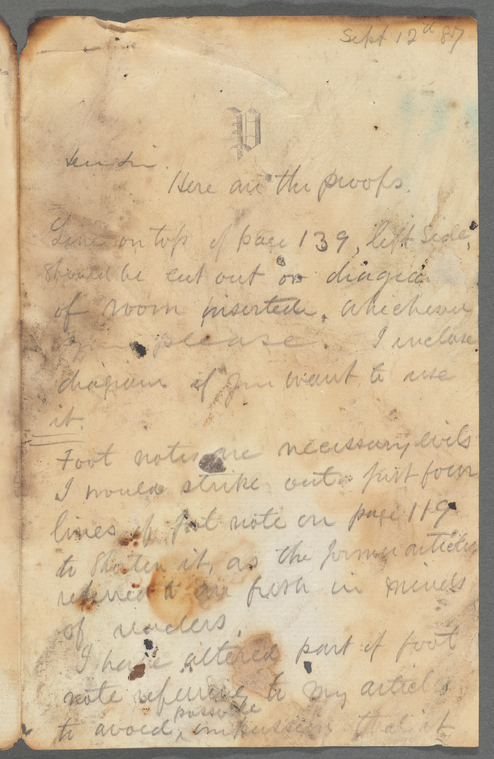 Sept 12d 87
P
Dear Sir
Here are the proofs.
Line on top of page 139, left side,
should be cut out or diagram
of room inserted, whichever
you please. I inclose
diagram if you want to use
it.
Foot notes are necessary evils
I would strike out first four
lines of foot note on page 119
to shorten it, as the former articles
referred to are fresh in minds
of readers.
I have altered part of foot
note referring to my article
to avoid possible impression that it